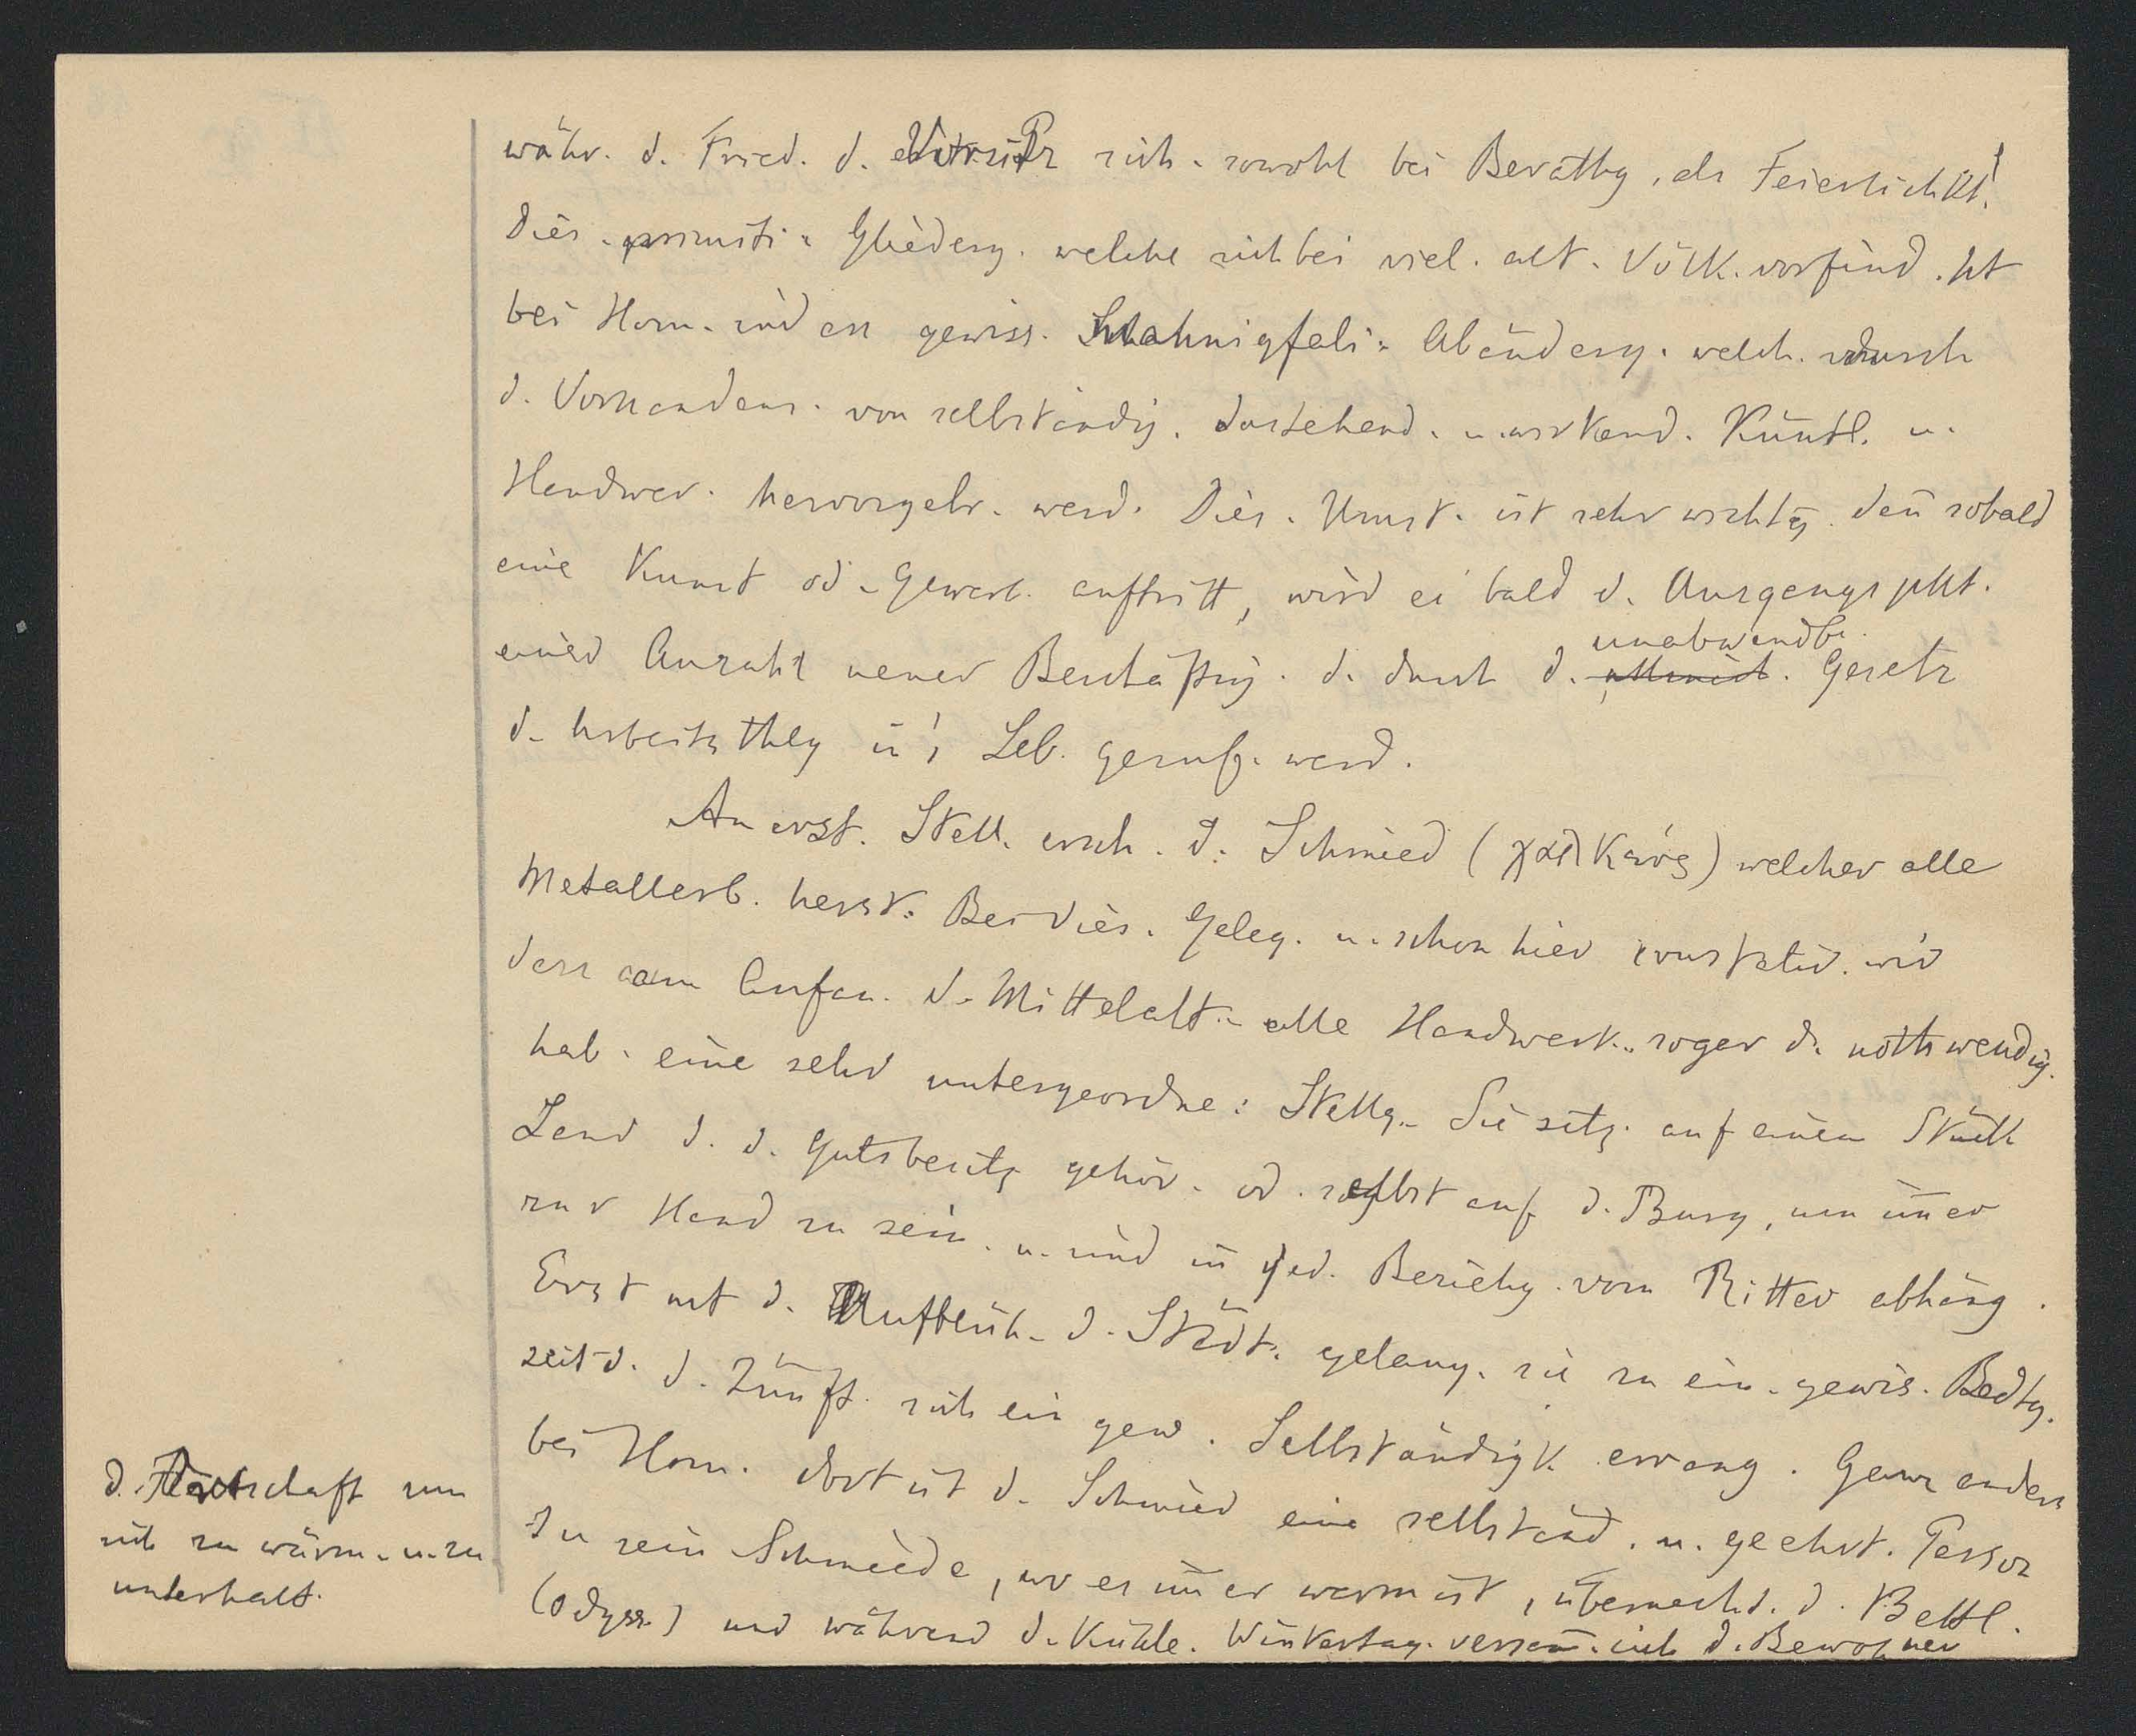 währ. d. Fried. d. Vorsitz sich. sowohl bei Berathg, als Feierlichkt.
Dies. primiti. Gliederg. welche sich bei viel. alt. Völk. vorfind. ht
bei Hom. indess gewiss. Mahnigfali. Abänderg. welch. durch
d. Vorhandens. von selbständig. dastehend. u. wirkend. Künstl. u.
Handwer. hervorgebr. werd. Dies. Umst. ist sehr wichtg. den̄ sobald
eine Kunst od. Gewerb. auftritt, wird ei bald d. Ausgangspkt.
einer Anzahl neuer Beschäftig. d. durch d. unabwendb. Gesetz
d. Arbeitsthlg in's Leb. geruf. werd.
An erst. Stell. ersch. d. Schmied (χαλκεύς) welcher alle
Metallarb. herst. Bei dies. Geleg. u. schon hier constatir. wir
dass am Anfan. d. Mittelalt. alle Handwerk. sogar d. nothwendig.
hab. eine sehr untergeordne. Stellg. Sie sitz. auf einem Stück
Land d. d. Gutsbesitz gehör. od. selbst auf d. Burg, um im̄er
zur Hand zu sein. u. sind in jed. Beziehg. vom Ritter abhäng.
Erst mt d. Aufblüh. d. Städt. gelang. sie zu ein. gewis. Bedtg.
seit d. d. Zünft. sich ein gew. Selbständigk. errang. Ganz anders
bei Hom. dort ist d. Schmied eine selbständ. u. geehrt. Person
In sein Schmiede, wo es im̄er warm ist, übernacht. d. Bettl.
(Odyss.) und während d. Kühle. Wintertag. versam̄. sich d. Bewohner
d. Ortschaft um
sich zu wärm. u. zu
unterhalt.